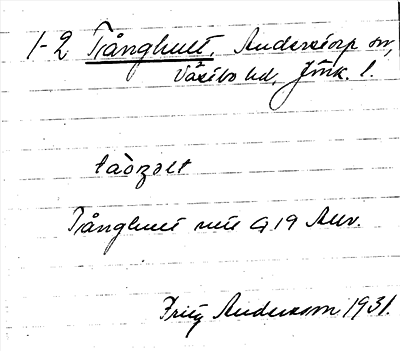 1-2 Trånghult, Anderstorp sn,
Västbo hd, Jmk. l.
Trånghult
G 19 Anv.
Fritz Andersson 1931.